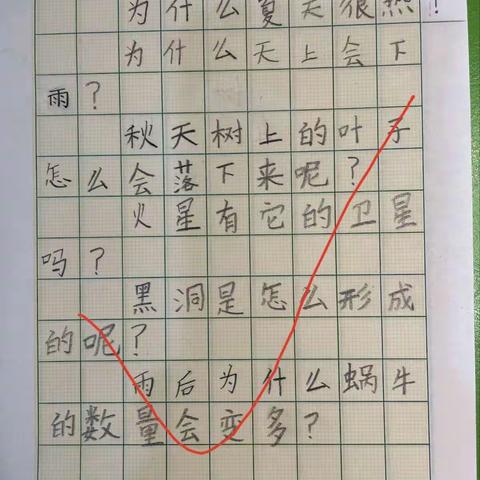 为什么夏天很热!
为什么天上会下
雨?
秋天树上的叶子
怎么会落下来呢?
火星有它的卫星
吗?
黑洞是怎么形成
的呢?
雨后为什么蜗牛
的数量会变多?